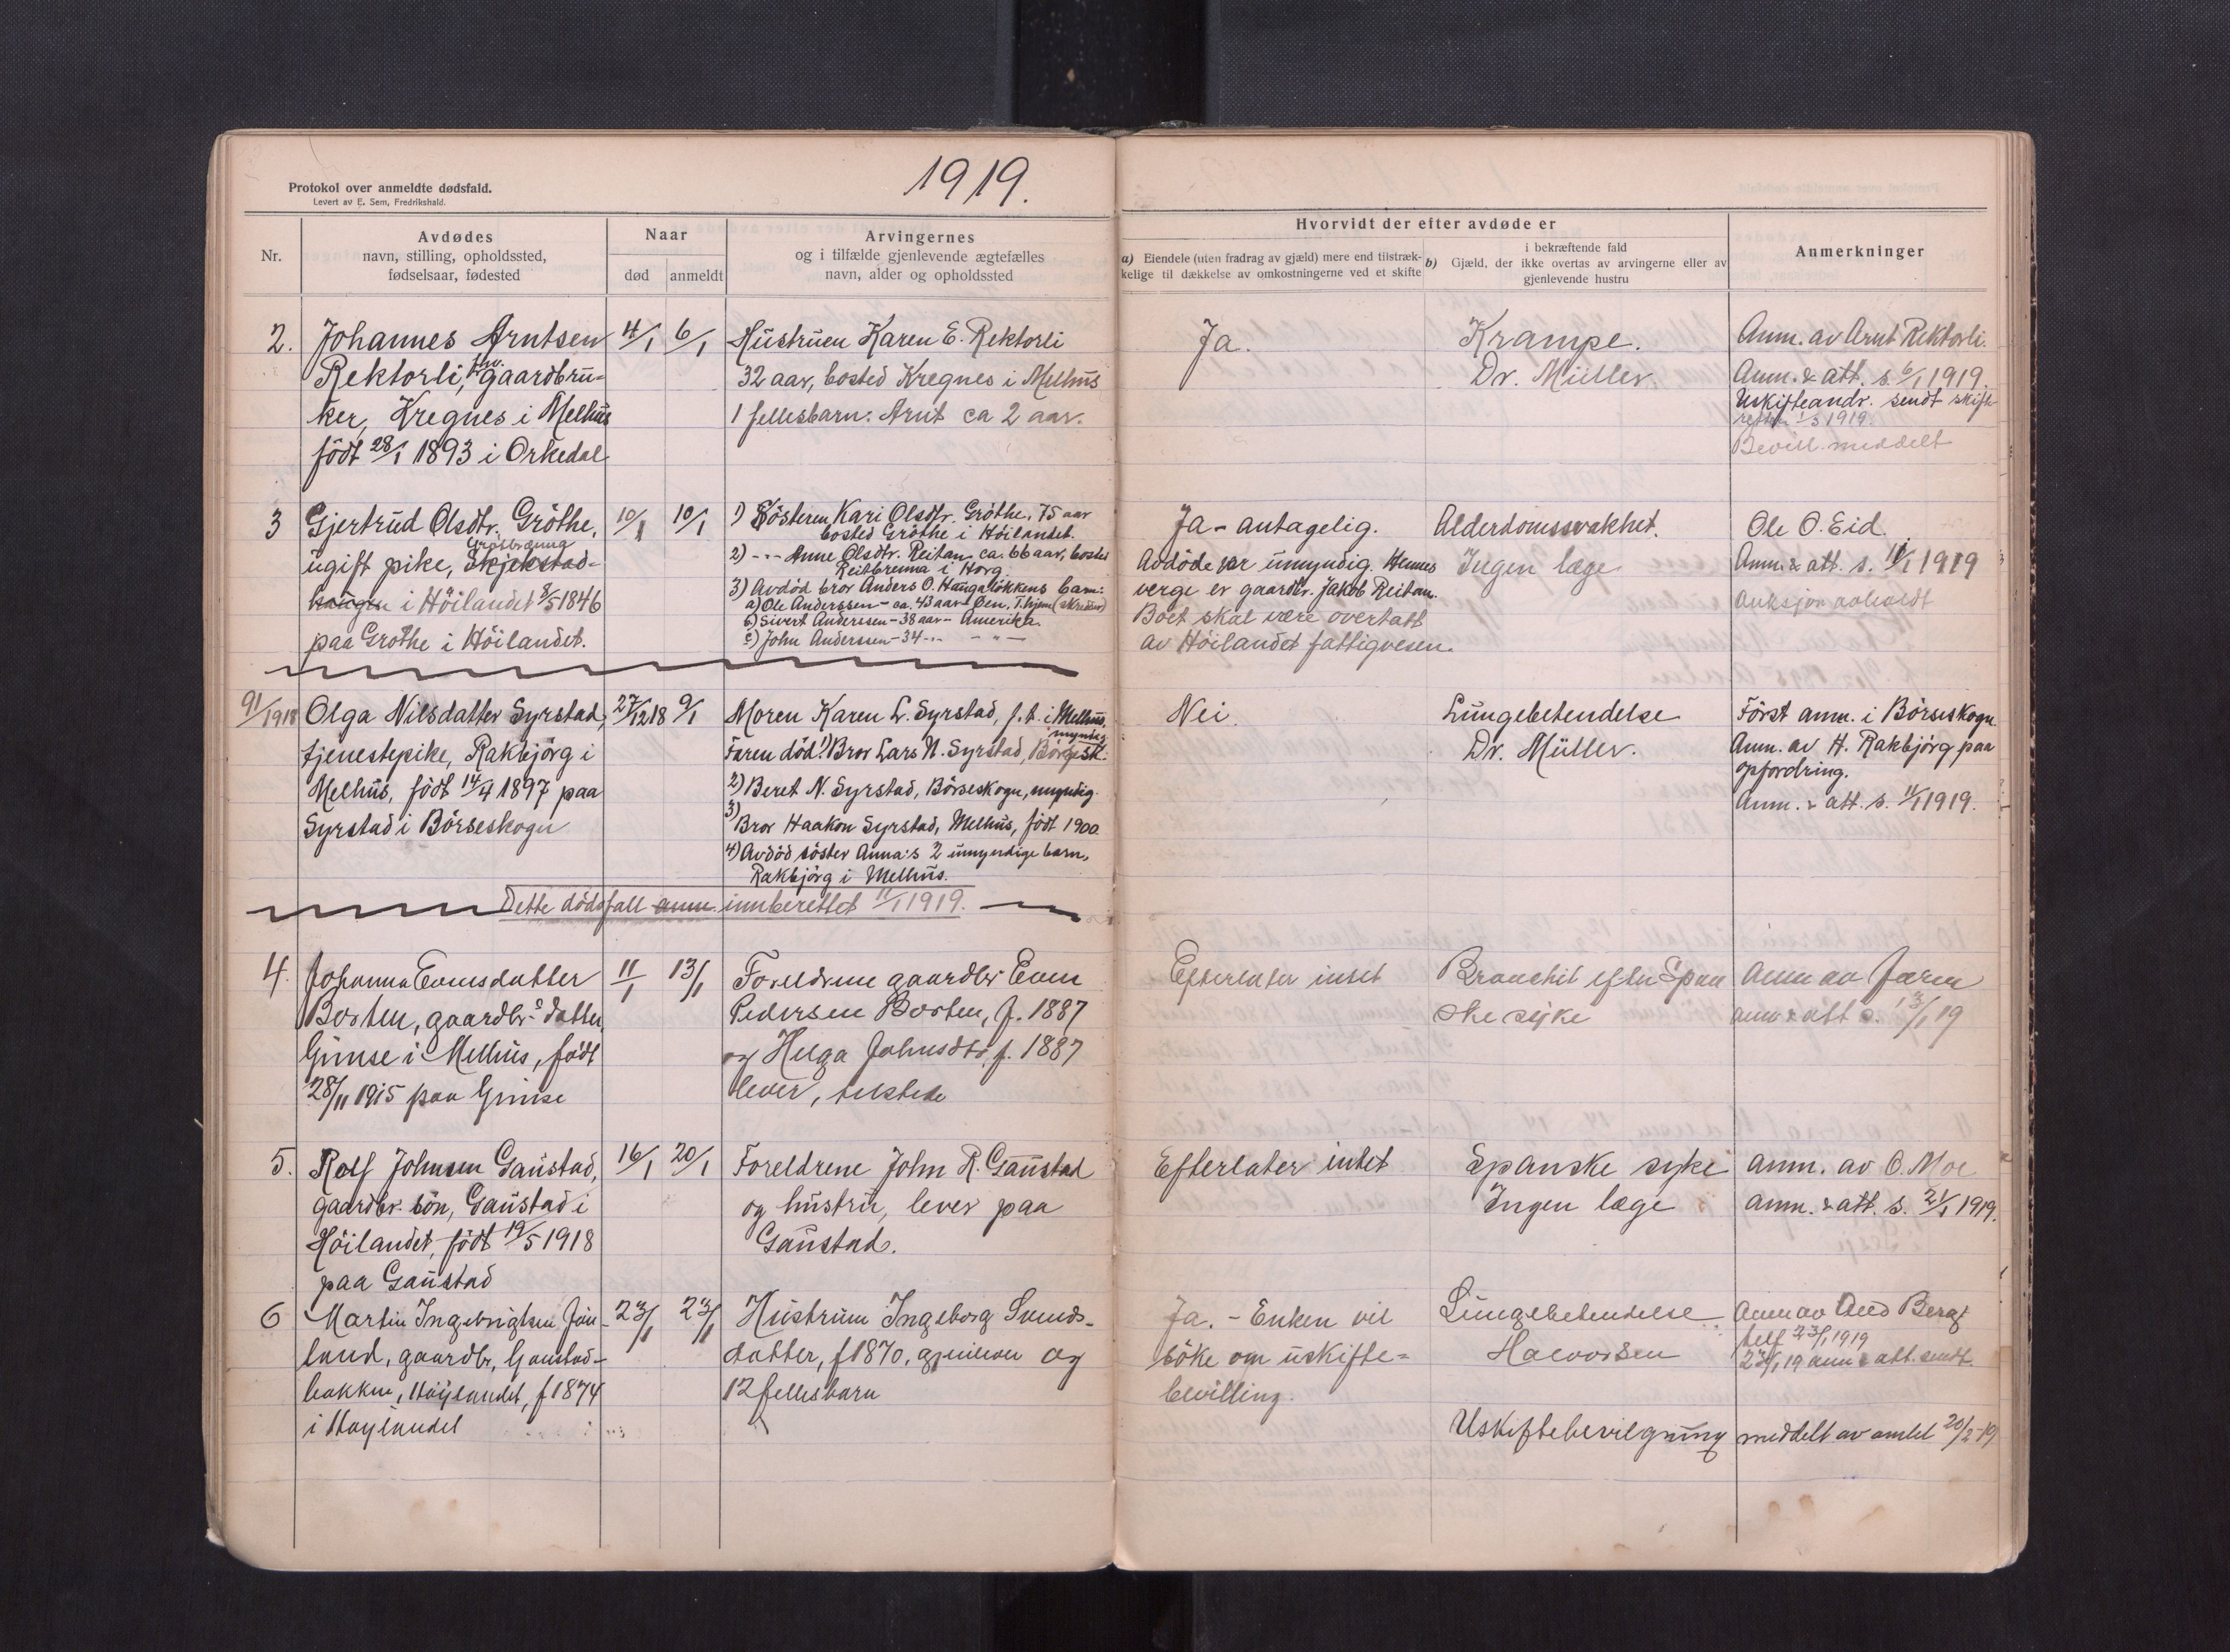 1919.
Protokol over anmeldte dødsfald.
Levert av E. Sem, Fredrikshald.
Nr.
Avdødes
navn, stilling, opholdssted,
fødselsaar, fødested
Naar
død
anmeldt
Arvingernes
og i tilfælde gjenlevende ægtefælles
navn, alder og opholdssted
Hvorvidt der efter avdøde er
a) Eiendele (uten fradrag av gjæld) mere end tilstræk-
kelige til dækkelse av omkostningerne ved et skifte
i bekræftende fald
b) Gjæld, der ikke overtas av arvingerne eller av
gjenlevende hustru
Anmerkninger
2.
Johannes Arntsen
Rektorli, fhv. gaardbru-
ker, Kregnes i Melhus
födt 28/1 1893 i Orkedal
4/1
6/1
Hustruen Karen E. Rektorli
32 aar, bosted Kregnes i Melhus
1 fellesbarn: Arnt ca 2 aar.
Ja.
Krampe.
Dr. Müller.
Anm. av Arnt Rektorli.
Anm. & att. s. 6/1 1919.
Uskifteandr. sendt skifte
retten 1/3 1919.
Bevill. meddelt
3
Gjertrud Olsdtr. Gröthe,
Grötbrenna
ugift pike, Skjekstad-
haugen i Höilandet 8/5 1846
paa Grothe i Höilandet.
10/1
10/1
1) Sösteren Kari Olsdtr. Gröthe, 75 aar
bosted Gröthe i Höilandet.
2) - - - Anne Olsdtr. Reitan ca. 66 aar, bosted
Reitbrenna i Horg
3) Avdöd bror Anders O. Haugalökkens barn:
a) Ole Anderssen - ca. 43 aar - Öen, T.hjem (skredder)
b) Sivert Anderssen - 38 aar - Amerika.
c) John Anderssen - 34 - - - " -
Ja - antagelig.
Avdöde var umyndig. Hennes
verge er gaardbr. Jakob Reitan.
Boet skal være overtatt
av Höilandet fattigvesen.
Alderdomssvakhet.
Ingen læge
Ole O. Eid.
Anm. & att. s. 11/1 1919
Auksjon avholdt
91/1918
Olga Nilsdatter Syrstad,
tjenestepike, Rakbjörg i
Melhus, födt 14/4 1897 paa
Syrstad i Börseskogn
27/12 18
9/1
Moren Karen L. Syrstad, f. t. i Melhus,
myndig
Faren död. 1) Bror Lars N. Syrstad, Börsesk.
2) Beret N. Syrstad, Börseskogn, myndig.
3)
Bror Haakon Syrstad, Melhus, födt 1900.
4) Avdöd söster Anna's 2 umyndige barn,
Rakbjörg i Melhus.
Dette dödsfall anm. innberettet 11/1 1919.
Nei.
Lungebetendelse
Dr. Müller.
Först anm. i Börseskogn
Anm. av H. Rakbjörg paa
opfordring.
Anm. & att. s. 11/1 1919.
4.
Johanna Evensdatter
Borten, gaardbr's datter,
Gimse i Melhus, födt
28/11 1915 paa Gimse
11/1
13/1
Foreldrene gaardbr Even
Pedersen Borten, f. 1887
og Helga Johnsdtr, f. 1887
lever, bosted
Efterlater intet
Bronchit efter Span
ske syke
Anm av faren
anm & att s. 13/1 19
5.
Rolf Johnsen Gaustad,
gaardbr. sön, Gaustad i
Höilandet, födt 19/5 1918
paa Gaustad
16/1
20/1
Foreldrene John R. Gaustad
og hustru, lever paa
Gaustad.
Efterlater intet
Spanske syke
Ingen læge
anm. av O. Moe
anm. & att. s. 21/1 1919.
6
Martin Ingebrigtsen
land, gaardbr, Gaustad-
bakken, Höylandet, f 1874
i Höylandet
23/1
23/1
Hustruen Ingeborg Svends-
datter, f 1870, gjenlever og
12 fellesbarn
Ja. - Enken vil
söke om uskifte-
bevilling.
Lungebetendelse
Halvorsen
Anm av And Berg
telf 23/1 1919
23/1 19 anm & att. sendt.
Uskiftebevilgning meddelt av amtet 20/2-19